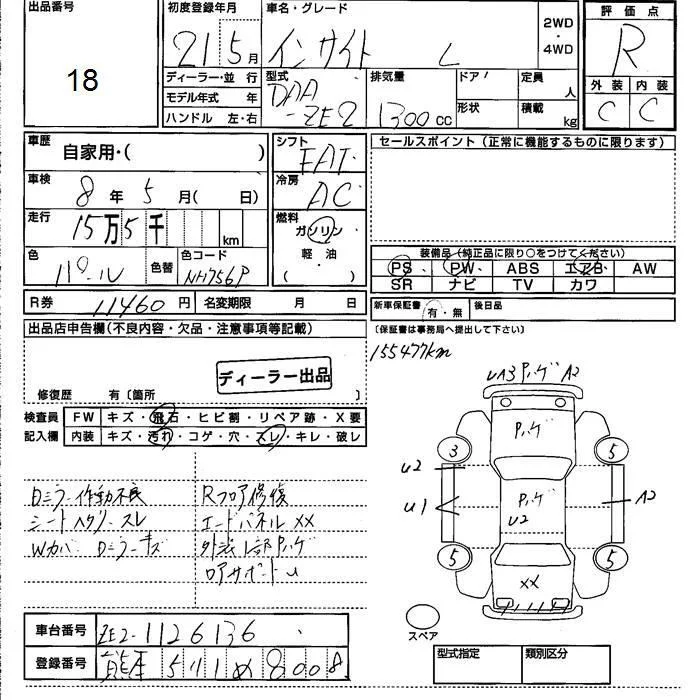 出品番号
18
初度登録年月
21 5月
車名・グレード
インサイト L
2WD
・
4WD
評価点
R
外装 内装
C C
ディーラー・並 行
モデル年式 年
ハンドル 左・右
型式
DAA
-ZE2
排気量
1300cc
ドア
形状
定員
人
積載
kg
車歴
自家用・( )
車検
8年5月( 日)
走行
15万5千 km
色
パール
色替
色コード
NH756P
シフト
FAT
冷房
AC
燃料
ガソリン
軽・油
( )
セールスポイント(正常に機能するものに限ります)
装備品(純正品に限り○をつけてください)
PS PW ABS エアB AW
SR ナビ TV カワ
R券 11460円 名変期限 月 日
新車保証書 有・無 後日品
(保証書は事務局へ提出して下さい)
155477km
出品店申告欄(不良内容・欠品・注意事項等記載)
ディーラー出品
修復歴 有〔箇所 〕
検査員 FW キズ・飛石・ヒビ割・リペア跡・X要
記入欄 内装 キズ・汚れ・コゲ・穴・スレ・キレ・破レ
Dミラー作動不良
シートヘタリ・スレ
Wカバー Dミラーキズ
Rフロア修復
エンドパネルXX
外装1部Pハゲ
ロアサポートU
UA3 Pハゲ A2
Pハゲ
3 5
U2
U1
Pハゲ
U2
A2
5 5
XX
スペア
車台番号 ZE2-1126136
登録番号 熊本 511 め 8008
型式指定 類別区分